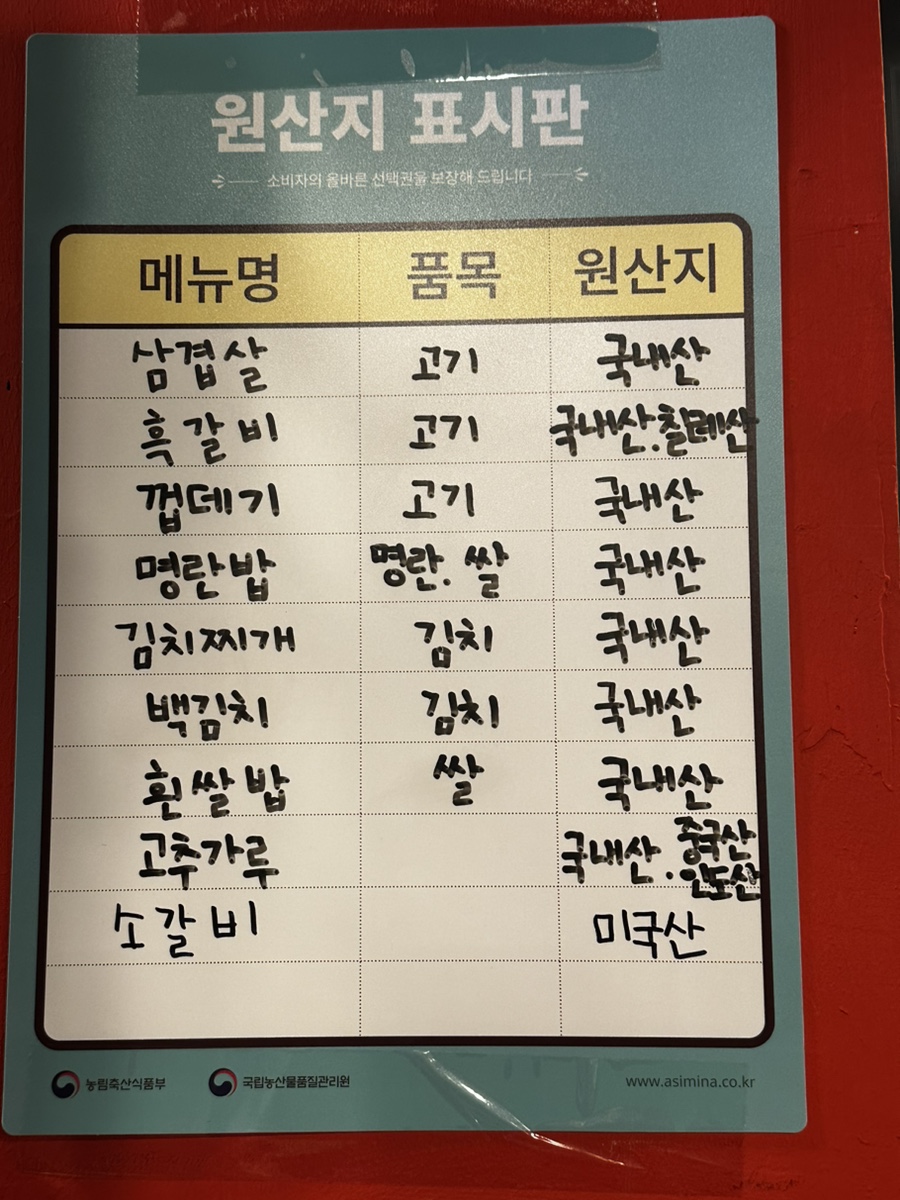 원산지 표시판
소비자의 올바른 선택권을 보장해 드립니다
메뉴명 품목 원산지
삼겹살 고기 국내산
흑갈비 고기 국내산.칠레산
껍데기 고기 국내산
명란밥 명란. 쌀 국내산
김치찌개 김치 국내산
백김치 김치 국내산
흰쌀밥 쌀 국내산
고추가루 국내산. 중국산 인도산
소갈비 미국산
농림축산식품부 국립농산물품질관리원 www.asimina.co.kr